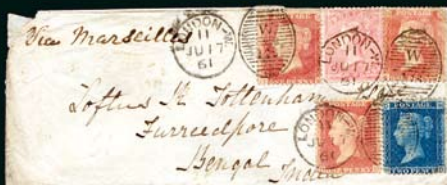 Via Marseilles
LONDON-W.
11
JU 17
61
W
LONDON-W.
11
JU 17
61
W
Loftus
Tottenham
Furreedpore
Bengal
India
LONDON-W
JU
61
POSTAGE
POSTAGE
TWO PENCE